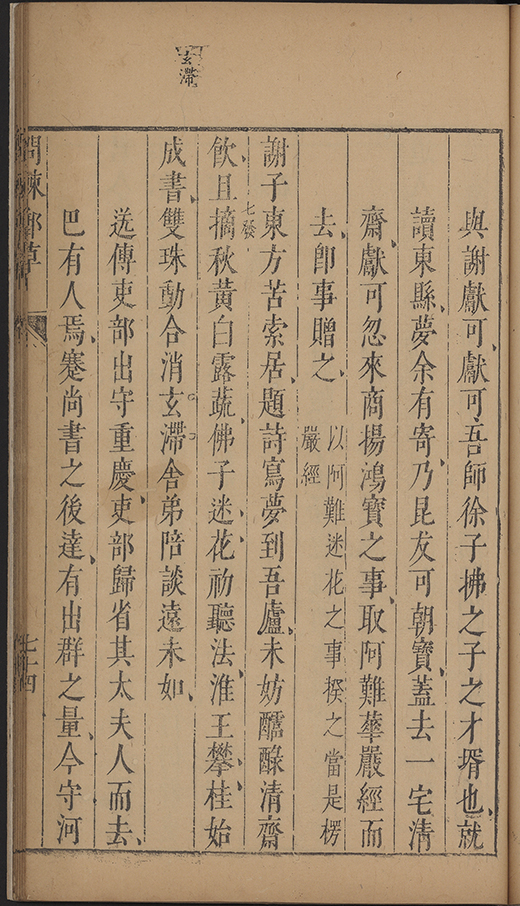 玄滯
與謝獻可獻可吾師徐子拂之子之才壻也就
讀東縣夢余有寄乃昆友可朝寳蓋去一宅清
齋獻可忽來商揚鴻寳之事取阿難華嚴經而
去卽事贈之以阿難迷花之事揆之當是楞
嚴經
謝子東方苦索居題詩寫夢到吾廬未妨醽醁清齋
七發
飲且摘秋黃白露蔬佛子迷花初聽法淮王攀桂始
成書雙珠動合消玄滯舍弟陪談遠未如
送傳吏部出守重慶吏部歸省其太夫人而去
巴有人焉蹇尚書之後達有出群之量今守河
問棘郵草
七十四